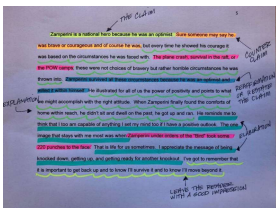 THE CLAIM
Zamperini is a national hero because he was an optimist. Sure someone may say he
was brave or courageous and of course he was, but every time he showed his courage it
COUNTER CLAIM
was based on the circumstances he was faced with. The plane crash, survival in the raft, or
the POW camps, these were not choices of bravery but rather horrible circumstances he was
thrown into. Zamperini survived all these circumstances because he was an optimist and
REAFFIRMATION OF CLAIM
willed it within himself. He illustrated for all of us the power of positivity and points to what
EXPLANATION
we might accomplish with the right attitude. When Zamperini finally found the comforts of
home within reach, he didn't sit and dwell on the past, he got up and ran. He reminds me to
think that I too am capable of anything I set my mind too if I have a positive outlook. The one
image that stays with me most was when Zamperini under orders of the "Bird" took some
220 punches to the face. That is life for us sometimes. I appreciate the message of being
knocked down, getting up, and getting ready for another knockout. I've got to remember that
it is important to get back up and to know I'll survive it and to know I'll move beyond it.
LEAVE THE READER
WITH A GOOD IMPRESSION